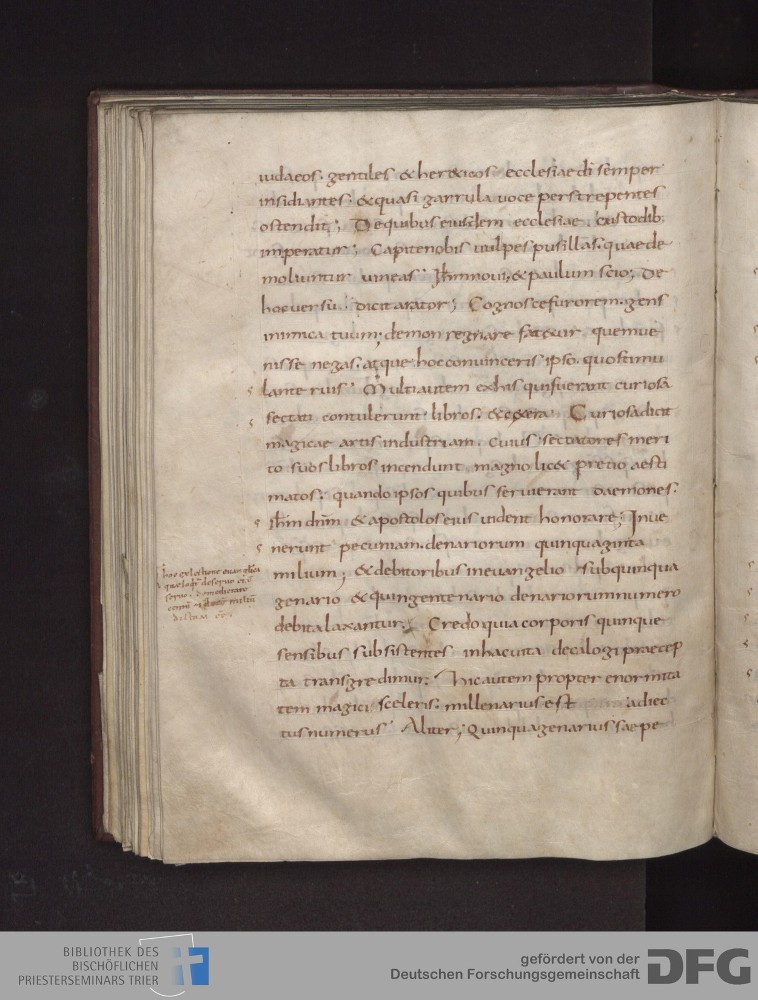 iudaeos. gentiles & her&icos ecclesiae dī semper
insidiantes. & quasi garrula uoce perstrepentes
ostendit; De quibus eiusdem ecclesiae custodib;
imperatur; Capite nobis uulpes pusillas. quae de
moliuntur uineas; Ihm noui, & paulum scio; De
hoc uersu. dicit arator; Cognosce furorem. gens
inimica tuum; demon regnare fat&ur quem ue
nisse negas. atque hoc conuinceris ipso. quo stimu
lante ruis; Multi autem ex his qui fuerant curiosa
sectati contulerunt libros. Curiosa dicit
magicae artis industriam. cuius sectatores meri
to suos libros incendunt magno lic& precio aesti
matos. quando ipsos quibus seruierant daemones.
ihm dnm & apostolos eius uident honorare; Inue
nerunt pecuniam. denariorum quinquaginta
milium; & debitoribus in euangelio sub quinqua
genario & quingentenario denariorum numero
debita laxantur; Credo quia corporis quinque
sensibus subsistentes in hac uita decalogi praecep
ta transgredimur; Hic autem propter enormita
tem magici sceleris. millenarius est adiec
tus numerus; Aliter; Quinquagenarius saepe
BIBLIOTHEK DES
BISCHÖFLICHEN
PRIESTERSEMINARS TRIER
gefördert von der
Deutschen Forschungsgemeinschaft
DFG